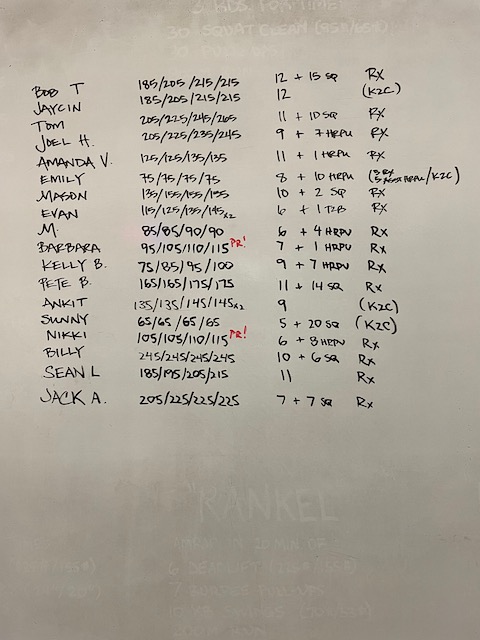 30 SQUAT CLEAN (95#/65#)
BOB T 185/205/215/215 12 + 15 SQ RX
JAYCIN 185/205/215/215 12 (K2C)
TOM 205/225/245/265 11 + 10 SQ RX
JOEL H. 205/225/235/245 9 + 7 HRPU RX
AMANDA V. 125/125/135/135 11 + 1 HRPU RX
EMILY 75/75/75/75 8 + 10 HRPU
MASON 135/155/155/155 10 + 2 SQ RX
EVAN 115/125/135/145x2 6 + 1 T2B RX
M. 85/85/90/90 6 + 4 HRPU RX
BARBARA 95/105/110/115 PR! 7 + 1 HRPU RX
KELLY B. 75/85/95/100 9 + 7 HRPU RX
PETE B. 165/165/175/175 11 + 14 SQ RX
ANKIT 135/135/145/145x2 9 (K2C)
SUNNY 65/65/65/65 5 + 20 SQ (K2C)
NIKKI 105/105/110/115 PR! 6 + 8 HRPU RX
BILLY 245/245/245/245 10 + 6 SQ RX
SEAN L 185/195/205/215 11 RX
JACK A. 205/225/225/225 7 + 7 SQ RX
"RANKEL